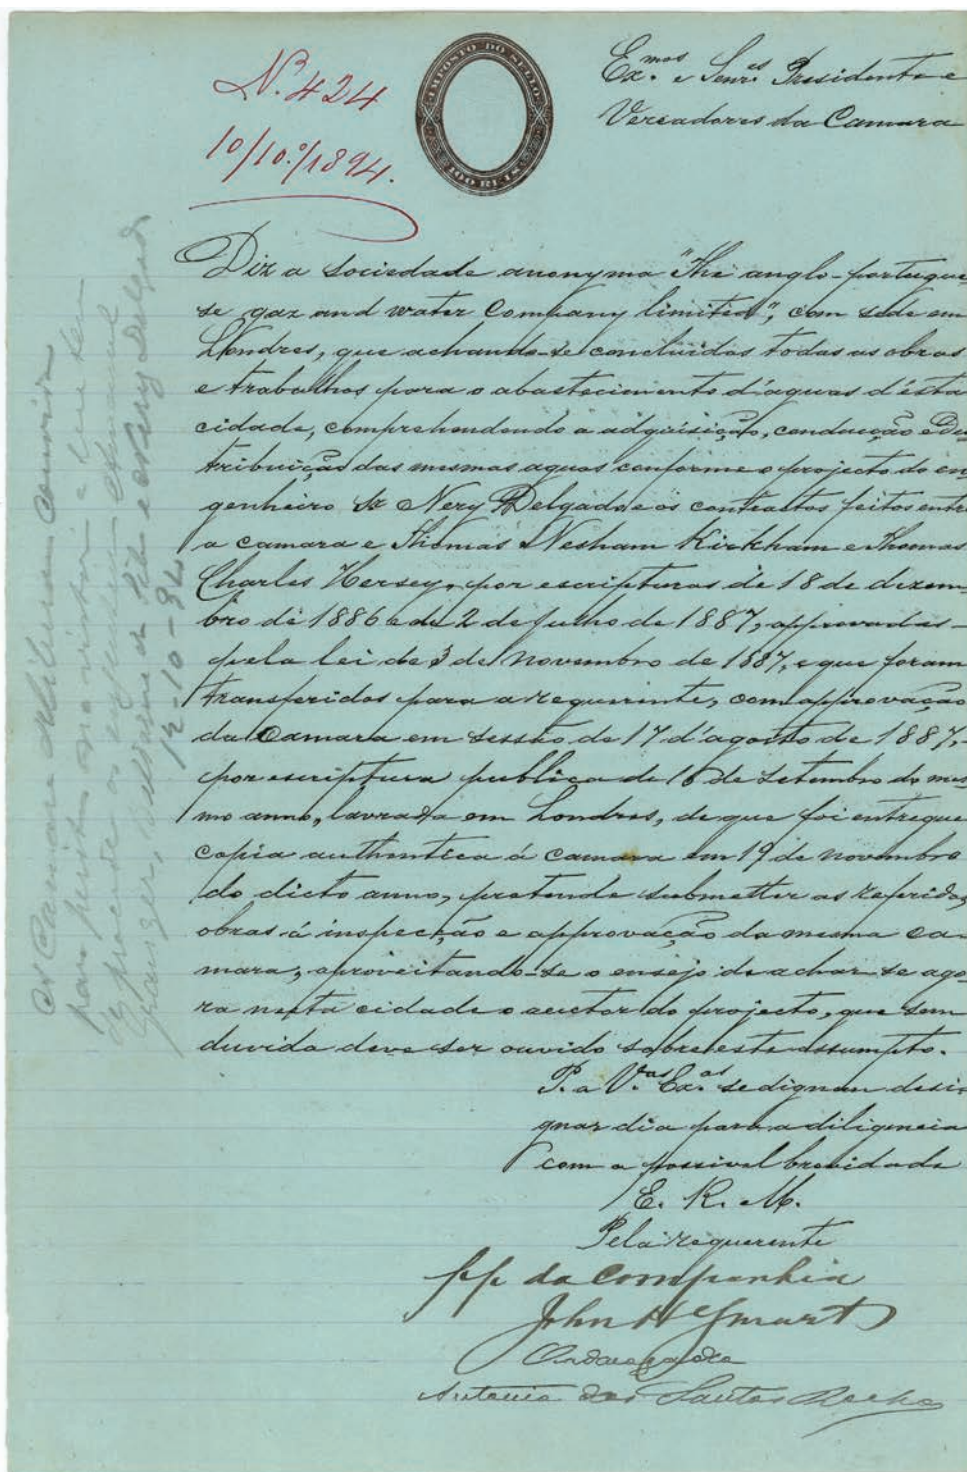 N.º 424
10/10.º/1894.
IMPOSTO DO SELLO
100 REIS
Ex.mos e Senr.es Presidente e
Vereadores da Camara
Diz a sociedade anonyma "The anglo-portugue-
se gaz and water Company limited", com séde em
Londres, que achando-se concluidas todas as obras
e trabalhos para o abastecimento d'aguas d'ésta
cidade, comprehendendo a adquisição, conducção e Dis
tribuição das mesmas aguas conforme o projecto do en
genheiro Sr Nery Delgado e os contractos feitos entre
a camara e Thomás Nesham Kirkham e Thomas
Charles Hersey, por escripturas de 18 de dezem-
bro de 1886 e de 2 de Julho de 1887, approvadas-
pela lei de 3 de Novembro de 1887, e que foram
transferidos para a requerente, com approvação
da Camara em sessão de 17 d'agosto de 1887,-
por escriptura publica de 16 de setembro do mes
mo anno, lavrada em Londres, de que foi entregue
copia authentica á camara em 19 de novembro
do dicto anno, pretende submetter as referidas
obras á inspecção e approvação da mesma ca-
mara, aproveitando-se o ensejo de achar-se ago-
ra nesta cidade o auctor do projecto, que sem
duvida deve ser ouvido sobre este assumpto.
P. a V.as Ex.as se dignem desi-
gnar dia para a diligencia
com a possivel brevidade
E. R. M.
Pela requerente
pp da Companhia
John H Smart
O advogado
Antonio dos Santos Rocha
A Camara deliberou convir
para peritos na vistoria que tem
requerente os engenheiros
e Nery Delgado
12-10-94